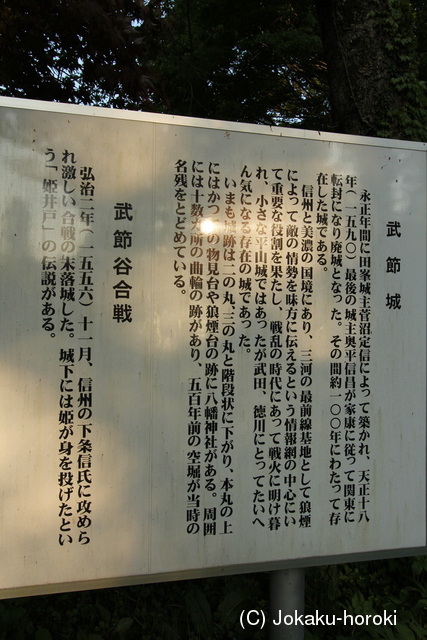 武節城
永正年間に田峯城主菅沼定信によって築かれ、天正十八
年（一五九〇）最後の城主奥平信昌が家康に従って関東に
転封になり廃城となった。その間約一〇〇年にわたって存
在した城である。
信州と美濃の国境にあり、三河の最前線基地として狼煙
によって敵の情勢を味方に伝えるという情報網の中心にい
て重要な役割を果たし、戦乱の時代にあって戦火に明け暮
れ、小さな平山城ではあったが武田、徳川にとってたいへ
ん気になる存在の城であった。
いまも城跡は二の丸、三の丸と階段状に下がり、本丸の上
にはかつての物見台や狼煙台の跡に八幡神社がある。周囲
には十数カ所の曲輪の跡があり、五百年前の空堀が当時の
名残をとどめている。
武節谷合戦
弘治二年（一五五六）十一月、信州の下条信氏に攻めら
れ激しい合戦の末落城した。城下には姫が身を投げたとい
う「姫井戸」の伝説がある。
(C) Jokaku-horoki